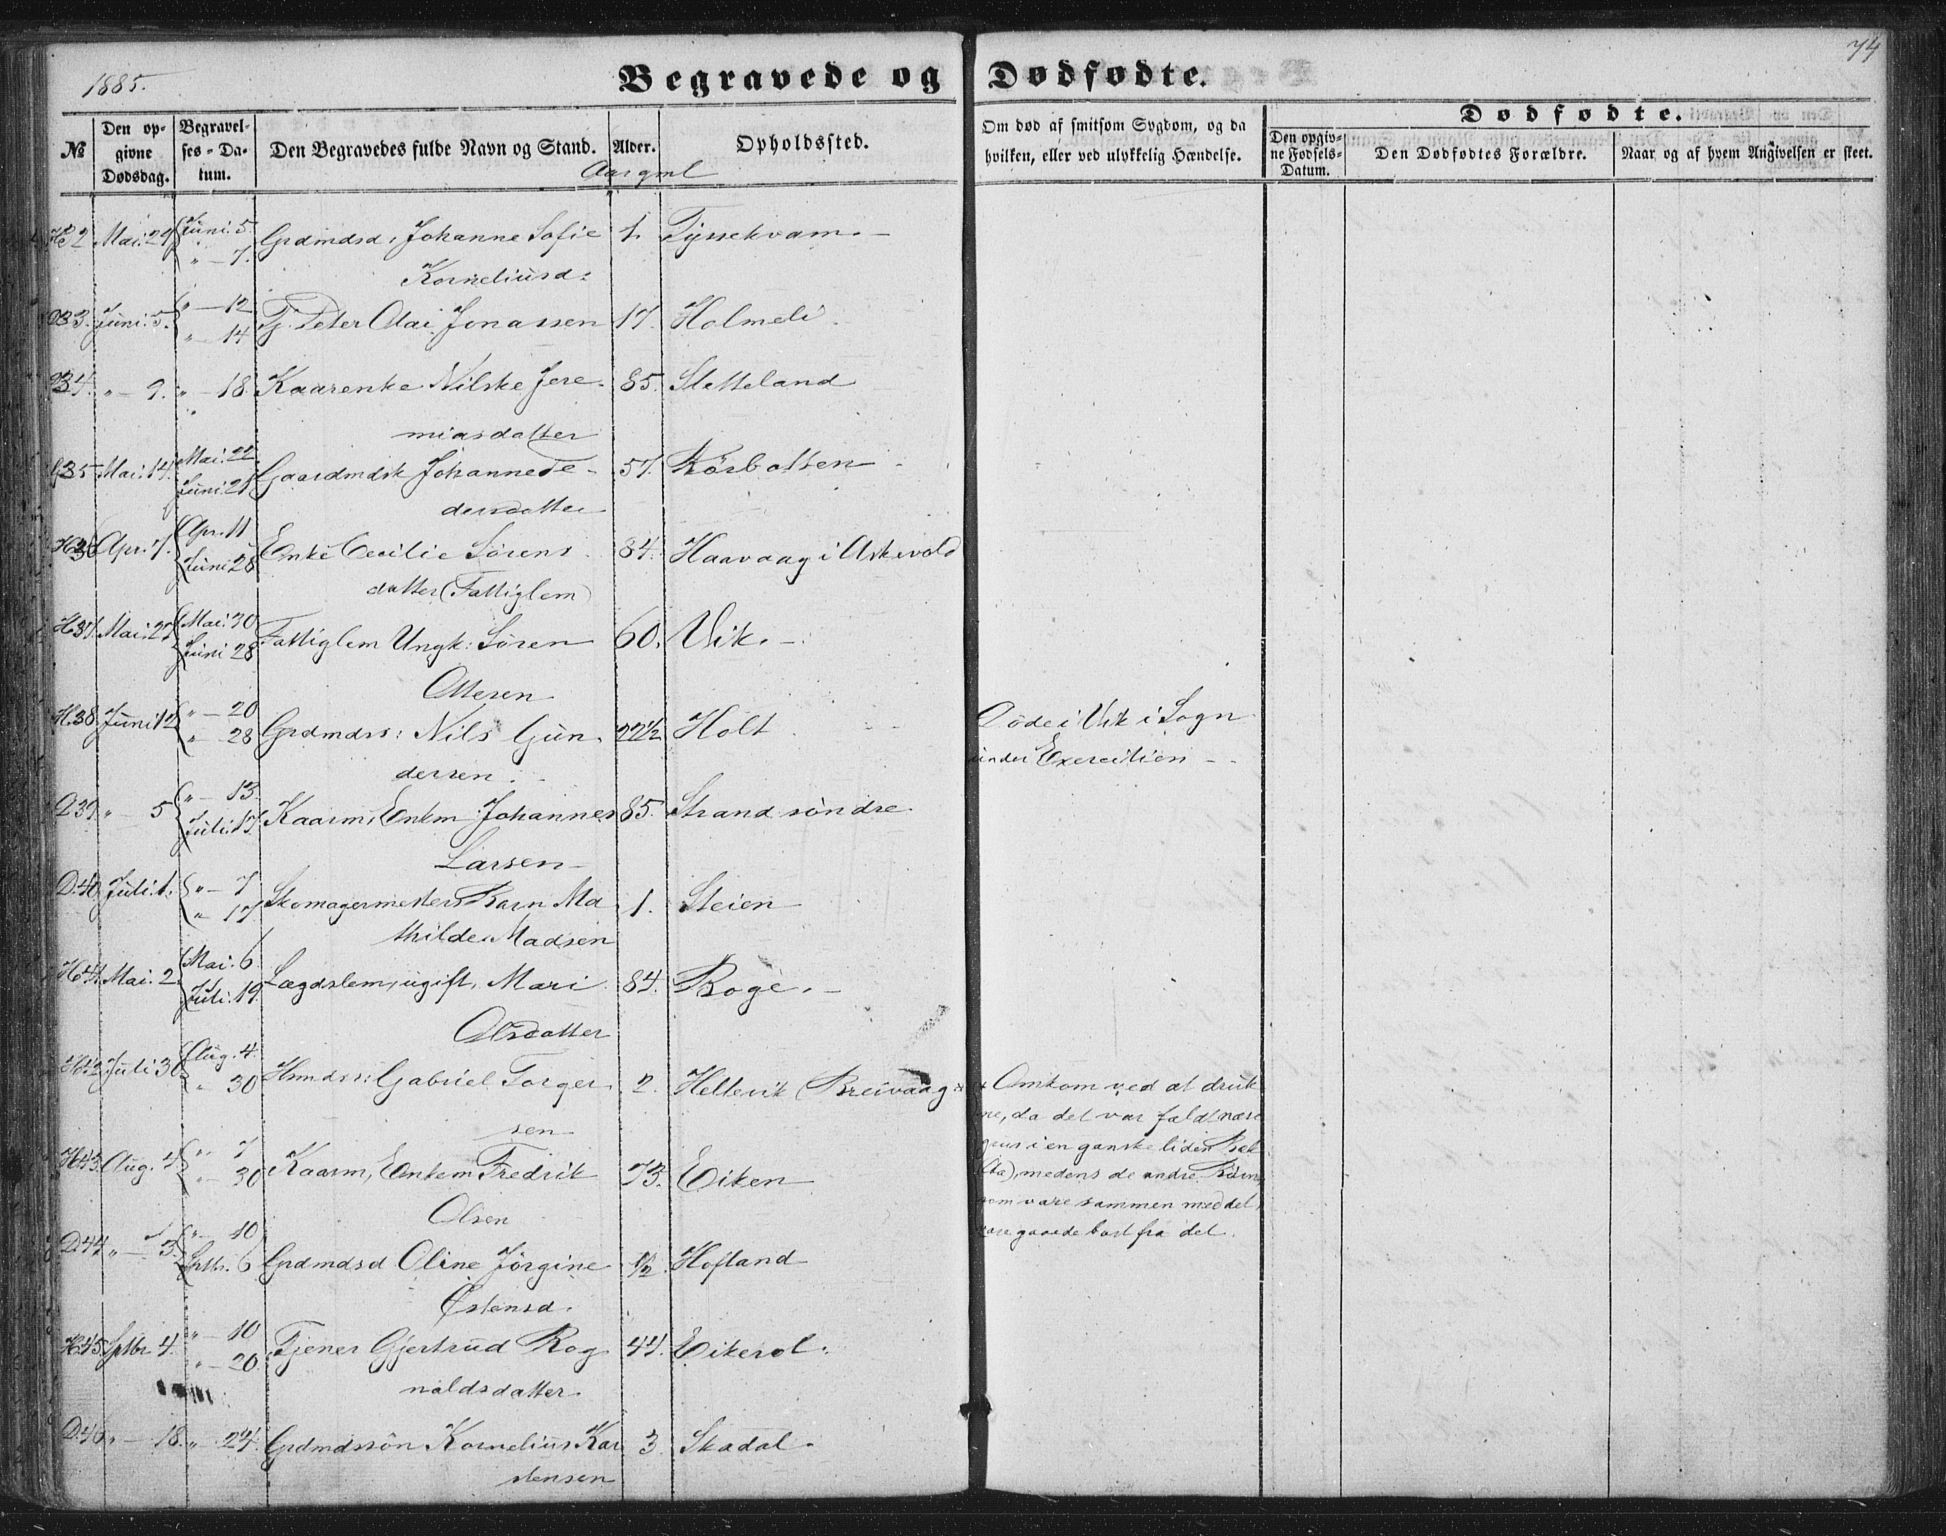 74
1885.
Begravede og Dødfødte.
№
Den opgivne Dødsdag.
Begravelses-Datum.
Den Begravedes fulde Navn og Stand.
Alder.
Opholdssted.
Om død af smitsom Sygdom, og da hvilken, eller ved ulykkelig Hændelse.
Dødfødte.
Den opgivne Fødsels-Datum.
Den Dødfødtes Forældre.
Naar og af hvem Angivelsen er skeet.
Aar gml
32 Mai. 29 Juni. 5. Grdmdsd. Johanne Sofie 1. Tyssekvam. —
" — 7. Korneliusd:
33. Juni. 5. " — 12 Tj. Peter Olai Jonassen 17. Holmeli.
" — 14
34. " — 9. " — 18. Kaarenke Nilske Jere- 85. Sletteland
miasdatter
35 Mai. 14. Mai. 22. Gaardmdsk Johanne Pe- 57. Rørbotten
Juni. 21 dersdatter
H36 Apr. 7. Apr. 11 Enke Cecilie Sørens 84. Haavaag i Askevold
Juni 28 datter (Fattiglem)
H37. Mai. 27 Mai. 30 Fattiglem Ungk: Søren 60. Vik. —
Juni 28 Ottesen
H.38. Juni 12 " — 20 Grdmdss: Nils Gun- 22 1/2 Holt Døde i Vik i Sogn
" 28 dersen. under Exercitien —
D39. " — 5 " — 13. Kaarm, Enkem. Johannes 85. Strand søndre
Juli. 17. Larsen
D.40. Juli. 1. " — 7 Skomagermesters Barn Ma 1. Steien
" 17. thilde Madsen
H41. Mai. 2. Mai. 6 Lægdslem, ugift, Mari 84. Boge. —
Juli. 19. Olsdatter
H42 Juli 30 Aug. 4. Hmdss: Gabriel Torger 2. Hellevik (Breivaag × × Omkom ved at druk
" 30 sen ne, da det var faldt næse
grus i en ganske liden Bæk
(Aa), medens de andre Børn,
som vare sammen med det,
vare gaaede bort fra det.
H43. Aug. 4 " 7 Kaarm, Enkem Fredrik 73. Eiken
" — 30 Olsen
D44 " — 3. " — 10 Grdmdsd Oline Jørgine 1/2 Hofland
Septbr. 6 Østensd.
H45. Sptbr 4. " — 10 Tjener Gjertrud Rog 44. Eikerol.
" — 20. naldsdatter
D46 " — 18. " 24. Grdmdssøn Kornelius Kar 3. Skadal.
stensen